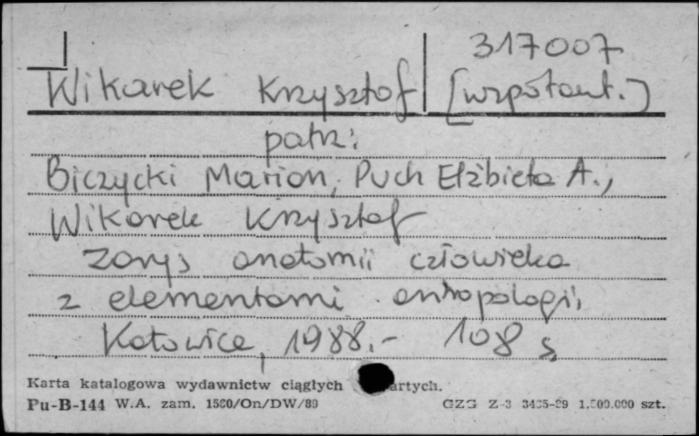 317007
Wikarek Krzysztof [współaut.]
patrz:
Biczycki Marion, Puch Elżbieta A.,
Wikarek Krzysztof
Zarys anatomii człowieka
z elementami antropologii,
Katowice, 1988.- 108 s
Karta katalogowa wydawnictw ciągłych
Pu-B-144 W.A. zam. 1560/On/DW/89 GZG Z-3 1.500.000 szt.